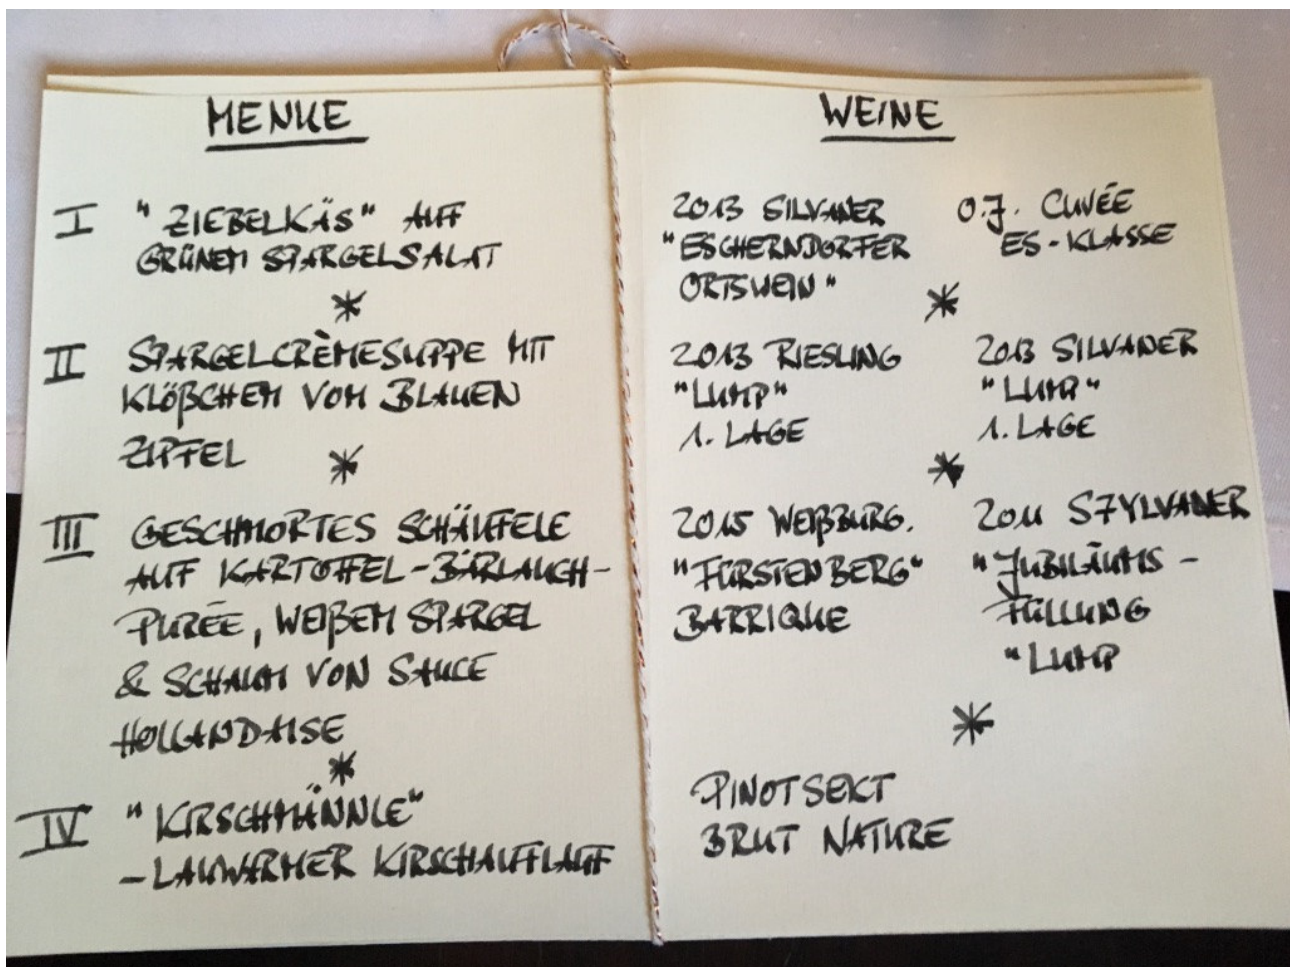 MENUE
I "ZIEBELKÄS" AUF
GRÜNEM SPARGELSALAT
*
II SPARGELCRÈMESUPPE MIT
KLÖßCHEM VOM BLAUEN
ZIPFEL
*
III GESCHMORTES SCHÄUFELE
AUF KARTOFFEL-BÄRLAUCH-
PURÉE, WEIßEM SPARGEL
& SCHAUM VON SAUCE
HOLLANDAISE
*
IV "KIRSCHMÄNNLE"
- LAUWARMER KIRSCHAUFLAUF
WEINE
2013 SILVANER
"ESCHERNDORFER
ORTSWEIN"
O.J. CUVÉE
ES-KLASSE
*
2013 RIESLING
"LUMP"
1. LAGE
2013 SILVANER
"LUMP"
1. LAGE
*
2015 WEIßBURG.
"FÜRSTENBERG"
BARRIQUE
2011 SZYLVANER
"JUBILÄUMS-
FÜLLUNG
"LUMP
*
PINOTSEKT
BRUT NATURE